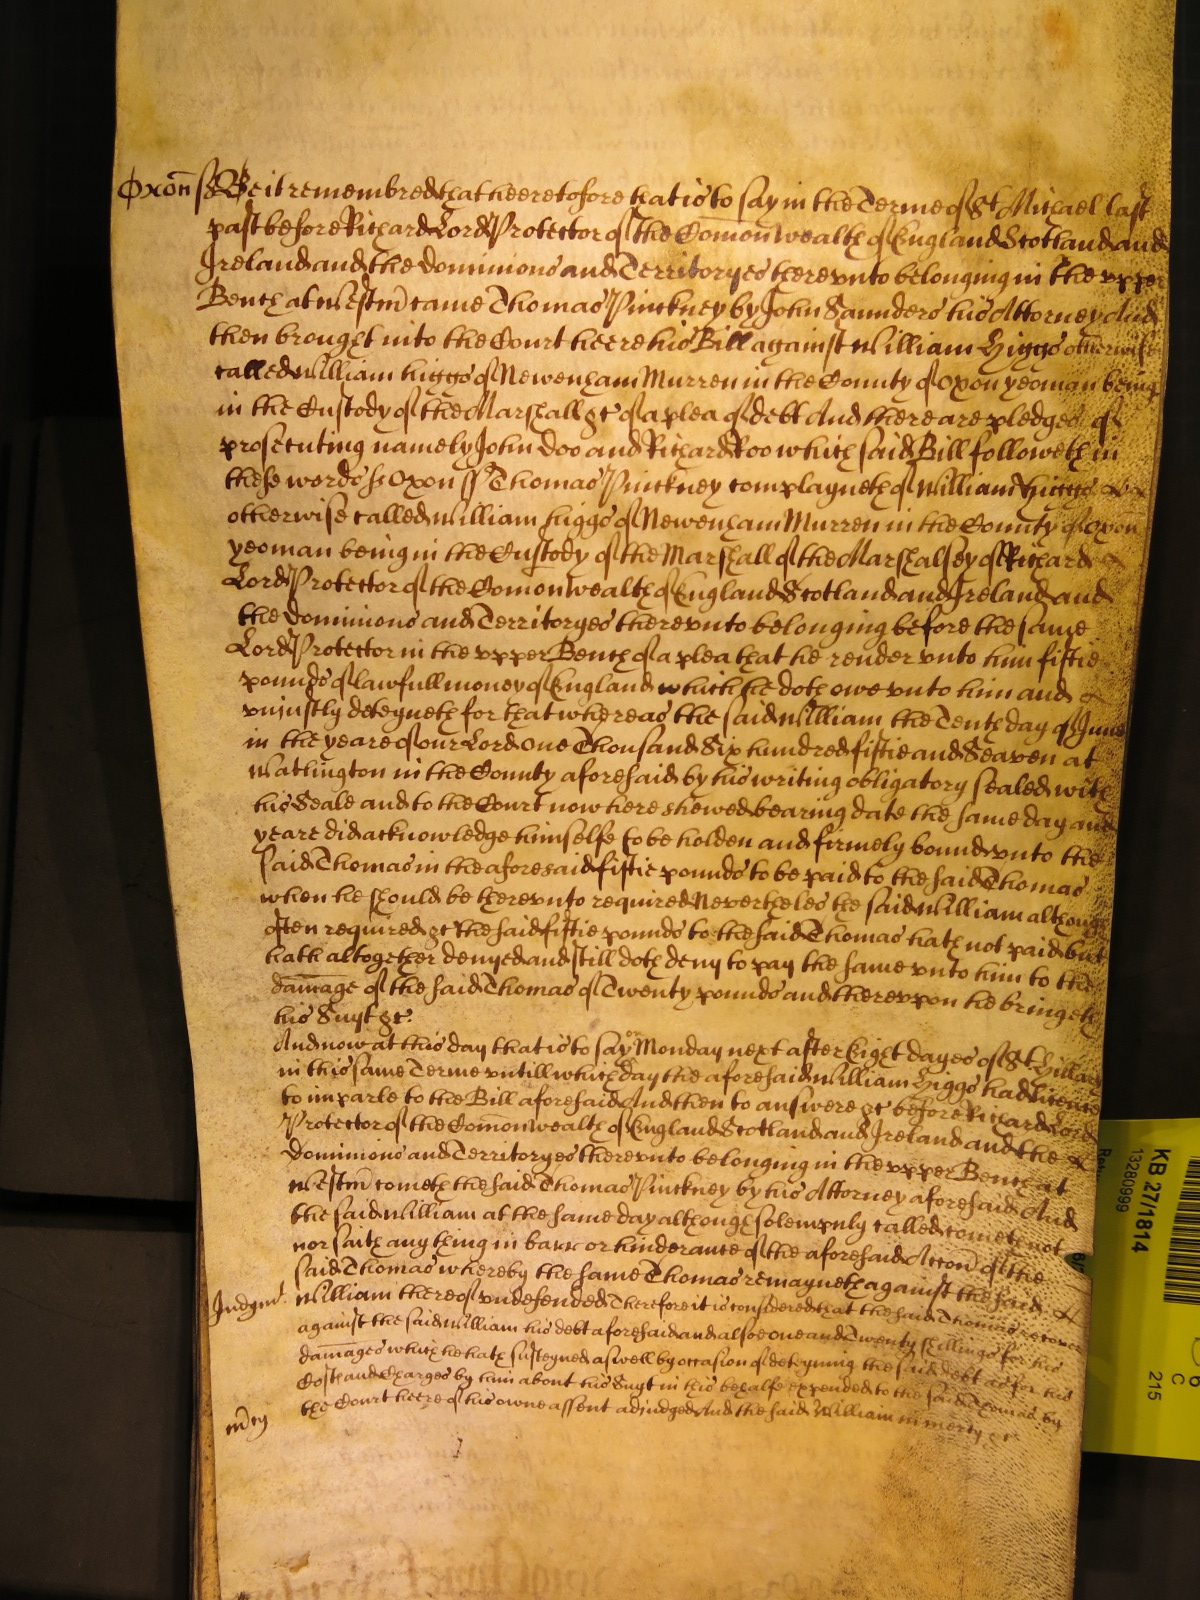 Oxon ss Be it remembred that heeretofore that is to say in the Terme of St Michael last
past before Richard Lord Protector of the Com̄onwealth of England Scotland and
Ireland and the dominions and Territoryes therevnto belonging in the vpper
Bench at Westm̄ came Thomas Pinckney by John Saunders his Attorney And
then brought into the Court heere his Bill against William Higgs otherwise
called William higgs of Newenham Murren in the County of Oxon yeoman being
in the Custody of the Marshall &c of a plea of debt And there are pledges of
prosecuting namely John Doo and Richard Roo which said Bill followeth in
these words ss Oxon ss Thomas Pinckney complayneth of William Higgs
otherwise called William higgs of Newenham Murren in the County of Oxon
yeoman being in the Custody of the Marshall of the Marshalsey of Richard
Lord Protector of the Comonwealth of England Scotland and Ireland and
the dominions and Territoryes therevnto belonging before the same
Lord Protector in the vpper Bench of a plea that he render vnto him fiftie
pounds of lawfull money of England which he doth owe vnto him and
vniustly deteyneth for that whereas the said William the Tenth day of June
in the yeare of our Lord One Thousand Six hundred fiftie and Seaven at
Watlington in the County aforesaid by his writing obligatory sealed with
his Seale and to the Court now here shewed bearing date the same day and
yeare did acknowledge himselfe to be holden and firmely bound vnto the
said Thomas in the aforesaid fiftie pounds to be paid to the said Thomas
when he should be therevnto required Nevertheles the said William although
often required &c the said fiftie pounds to the said Thomas hath not paid but
hath altogether denyed and still doth deny to pay the same vnto him to the
dam̄age of the said Thomas of Twenty pounds and therevpon he bringeth
his Suyt &c.
And now at this day that is to say on Monday next after Eight dayes of St Hillary
in this same Terme vntill which day the aforesaid William Higgs had licence
to imparle to the Bill aforesaid And then to answere &c before Richard Lord
Protector of the Com̄onwealth of England Scotland and Ireland and the
dominions and Territoryes therevnto belonging in the vpper Bench at
Westm̄ cometh the said Thomas Pinckney by his Attorney aforesaid And
the said William at the same day although solempnly called cometh not
nor saith any thing in barr or hinderance of the aforesaid Acc̄on of the
said Thomas whereby the same Thomas remayneth against the said
Judgmt William thereof vndefended Therefore it is considered that the said Thomas recover
against the said William his debt aforesaid and alsoe one and Twenty shillings for his
dam̄ages which he hath susteyned aswell by occasion of deteyning the said debt as for his
Costs and Charges by him about his Suyt in this behalfe expended to the said Thomas by
the Court heere of his owne assent adjudged And the said William in mercy &c
m̄cy
KB 27/1814
13280999
C
215